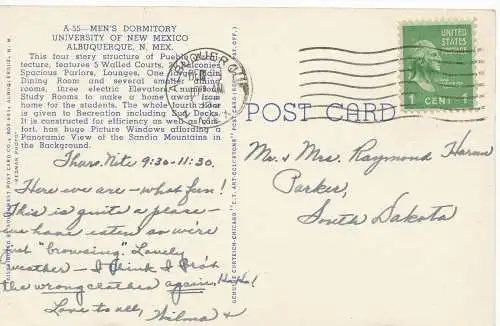 A-55—MEN'S DORMITORY
UNIVERSITY OF NEW MEXICO
ALBUQUERQUE, N. MEX.
This four story structure of Pueblo
tecture, features 5 Walled Courts, Balconies
Spacious Parlors, Lounges. One large Main
Dining Room and several smaller dining
rooms, three electric Elevators, numerous
Study Rooms to make a home away from
home for the students. The whole fourth floor
is given to Recreation including Sun Decks.
It is constructed for efficiency as well as com-
fort, has huge Picture Windows affording a
Panoramic View of the Sandia Mountains in
the Background.
Thurs. Nite 9:30-11:30.
Here we are—what fun!
This is quite a place—
we have eaten so we're
just "browsing". Lovely
weather—I think I
the wrong clothes again, Ha Ha!
Love to all, Wilma +
ALBUQUERQUE
N. MEX.
POST CARD
UNITED STATES
POSTAGE
1 CENT 1
Mr. & Mrs. Raymond
Parker,
South Dakota
GENUINE CURTEICH-CHICAGO "C.T. ART-COLORTONE" POST CARD (REG. U.S. PAT. OFF.)
SOUTHWEST POST CARD CO., BOX 685, ALBUQUERQUE, N. M.